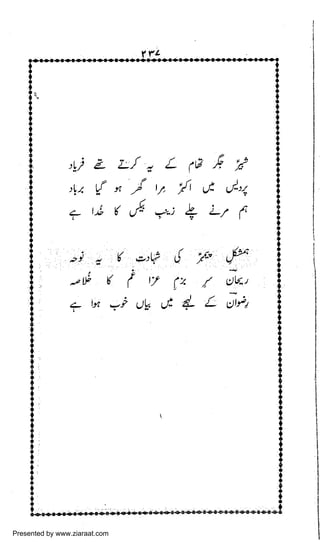 ۲۳۷
شبیرؑ جگر تھام کے یہ کرتے تھے فریاد
پردیس میں اکبرؑ مرا گھر ہو گیا برباد
ہم مرنے چلے زینبِ بیکس کا خُدا ہے
ہمشکلِ پیمبرؐ کی شہادت کا یہ نوحہ
ریحان سرِ بزمِ عزا غم کا خُلاصہ
رضوان کے لہجے میں بیاں خوب ہوا ہے
Presented by www.ziaraat.com